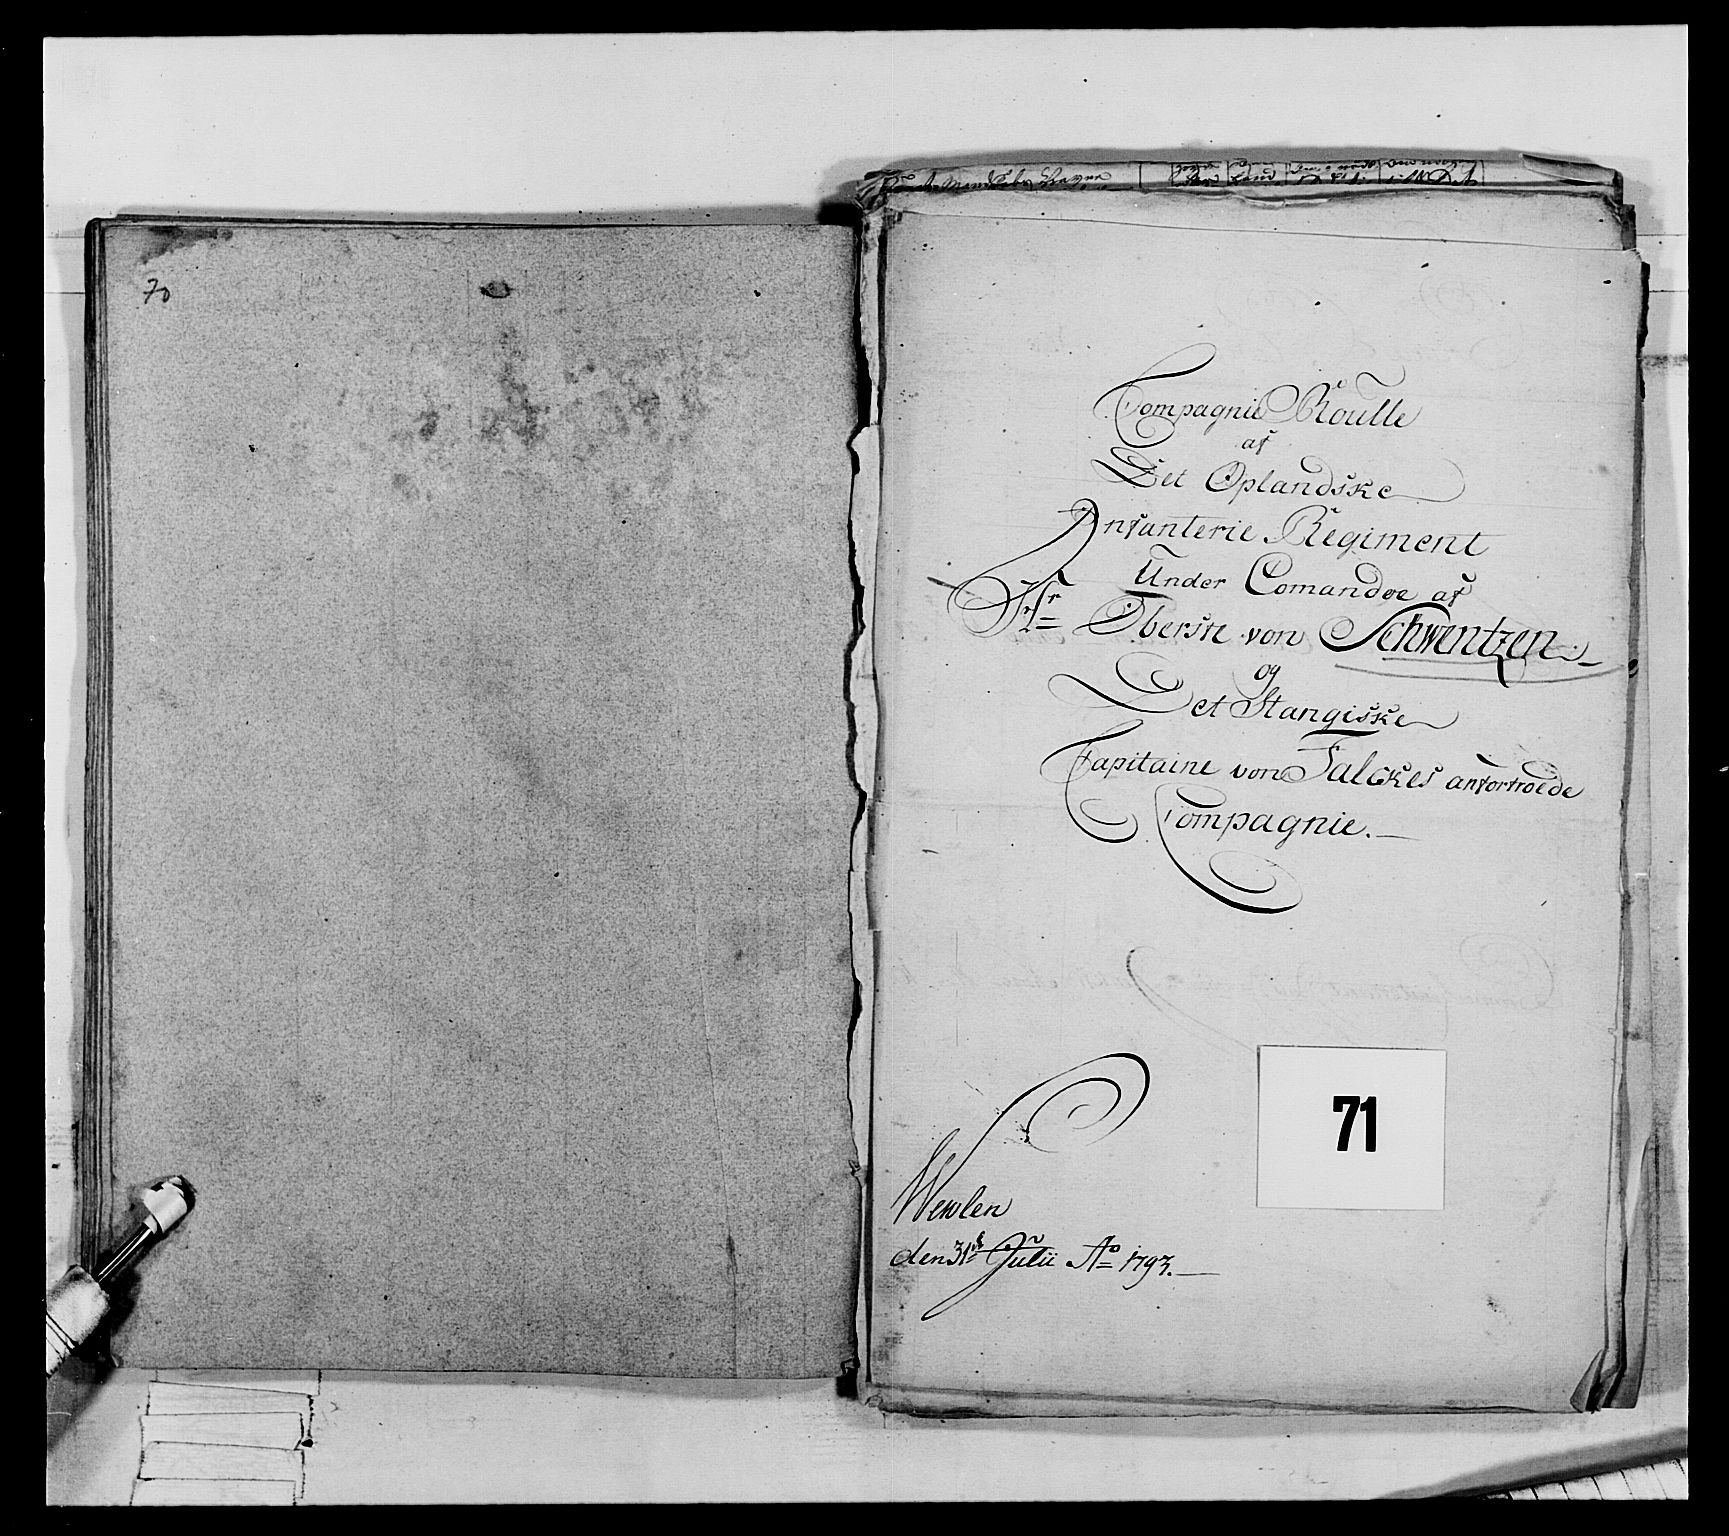 70
Compagnie Roulle
af
Det Oplandske
Infanterie Regiment
Under Comandoe af
Hr Oberste von Schwentzen
og
Det Stangiske
Capitaine von Falckes anfortroede
Compagnie.
71
Wewlen
den 31te Julii Ao 1793.